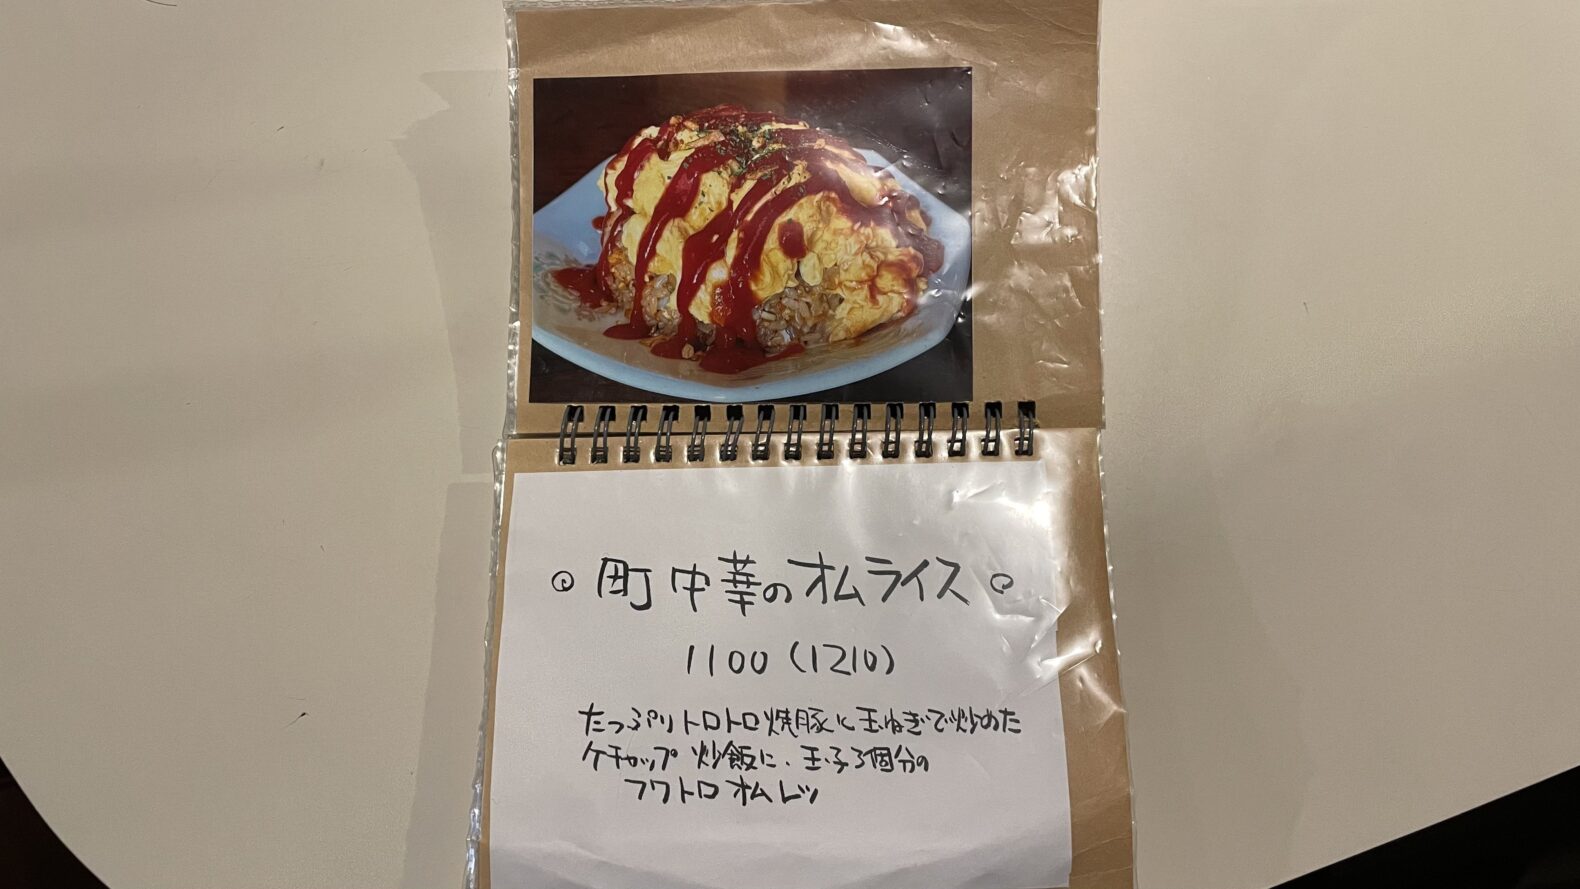 ◎ 町中華のオムライス ◎
1100(1210)
たっぷりトロトロ焼豚と玉ねぎで炒めた
ケチャップ炒飯に、玉子3個分の
フワトロオムレツ